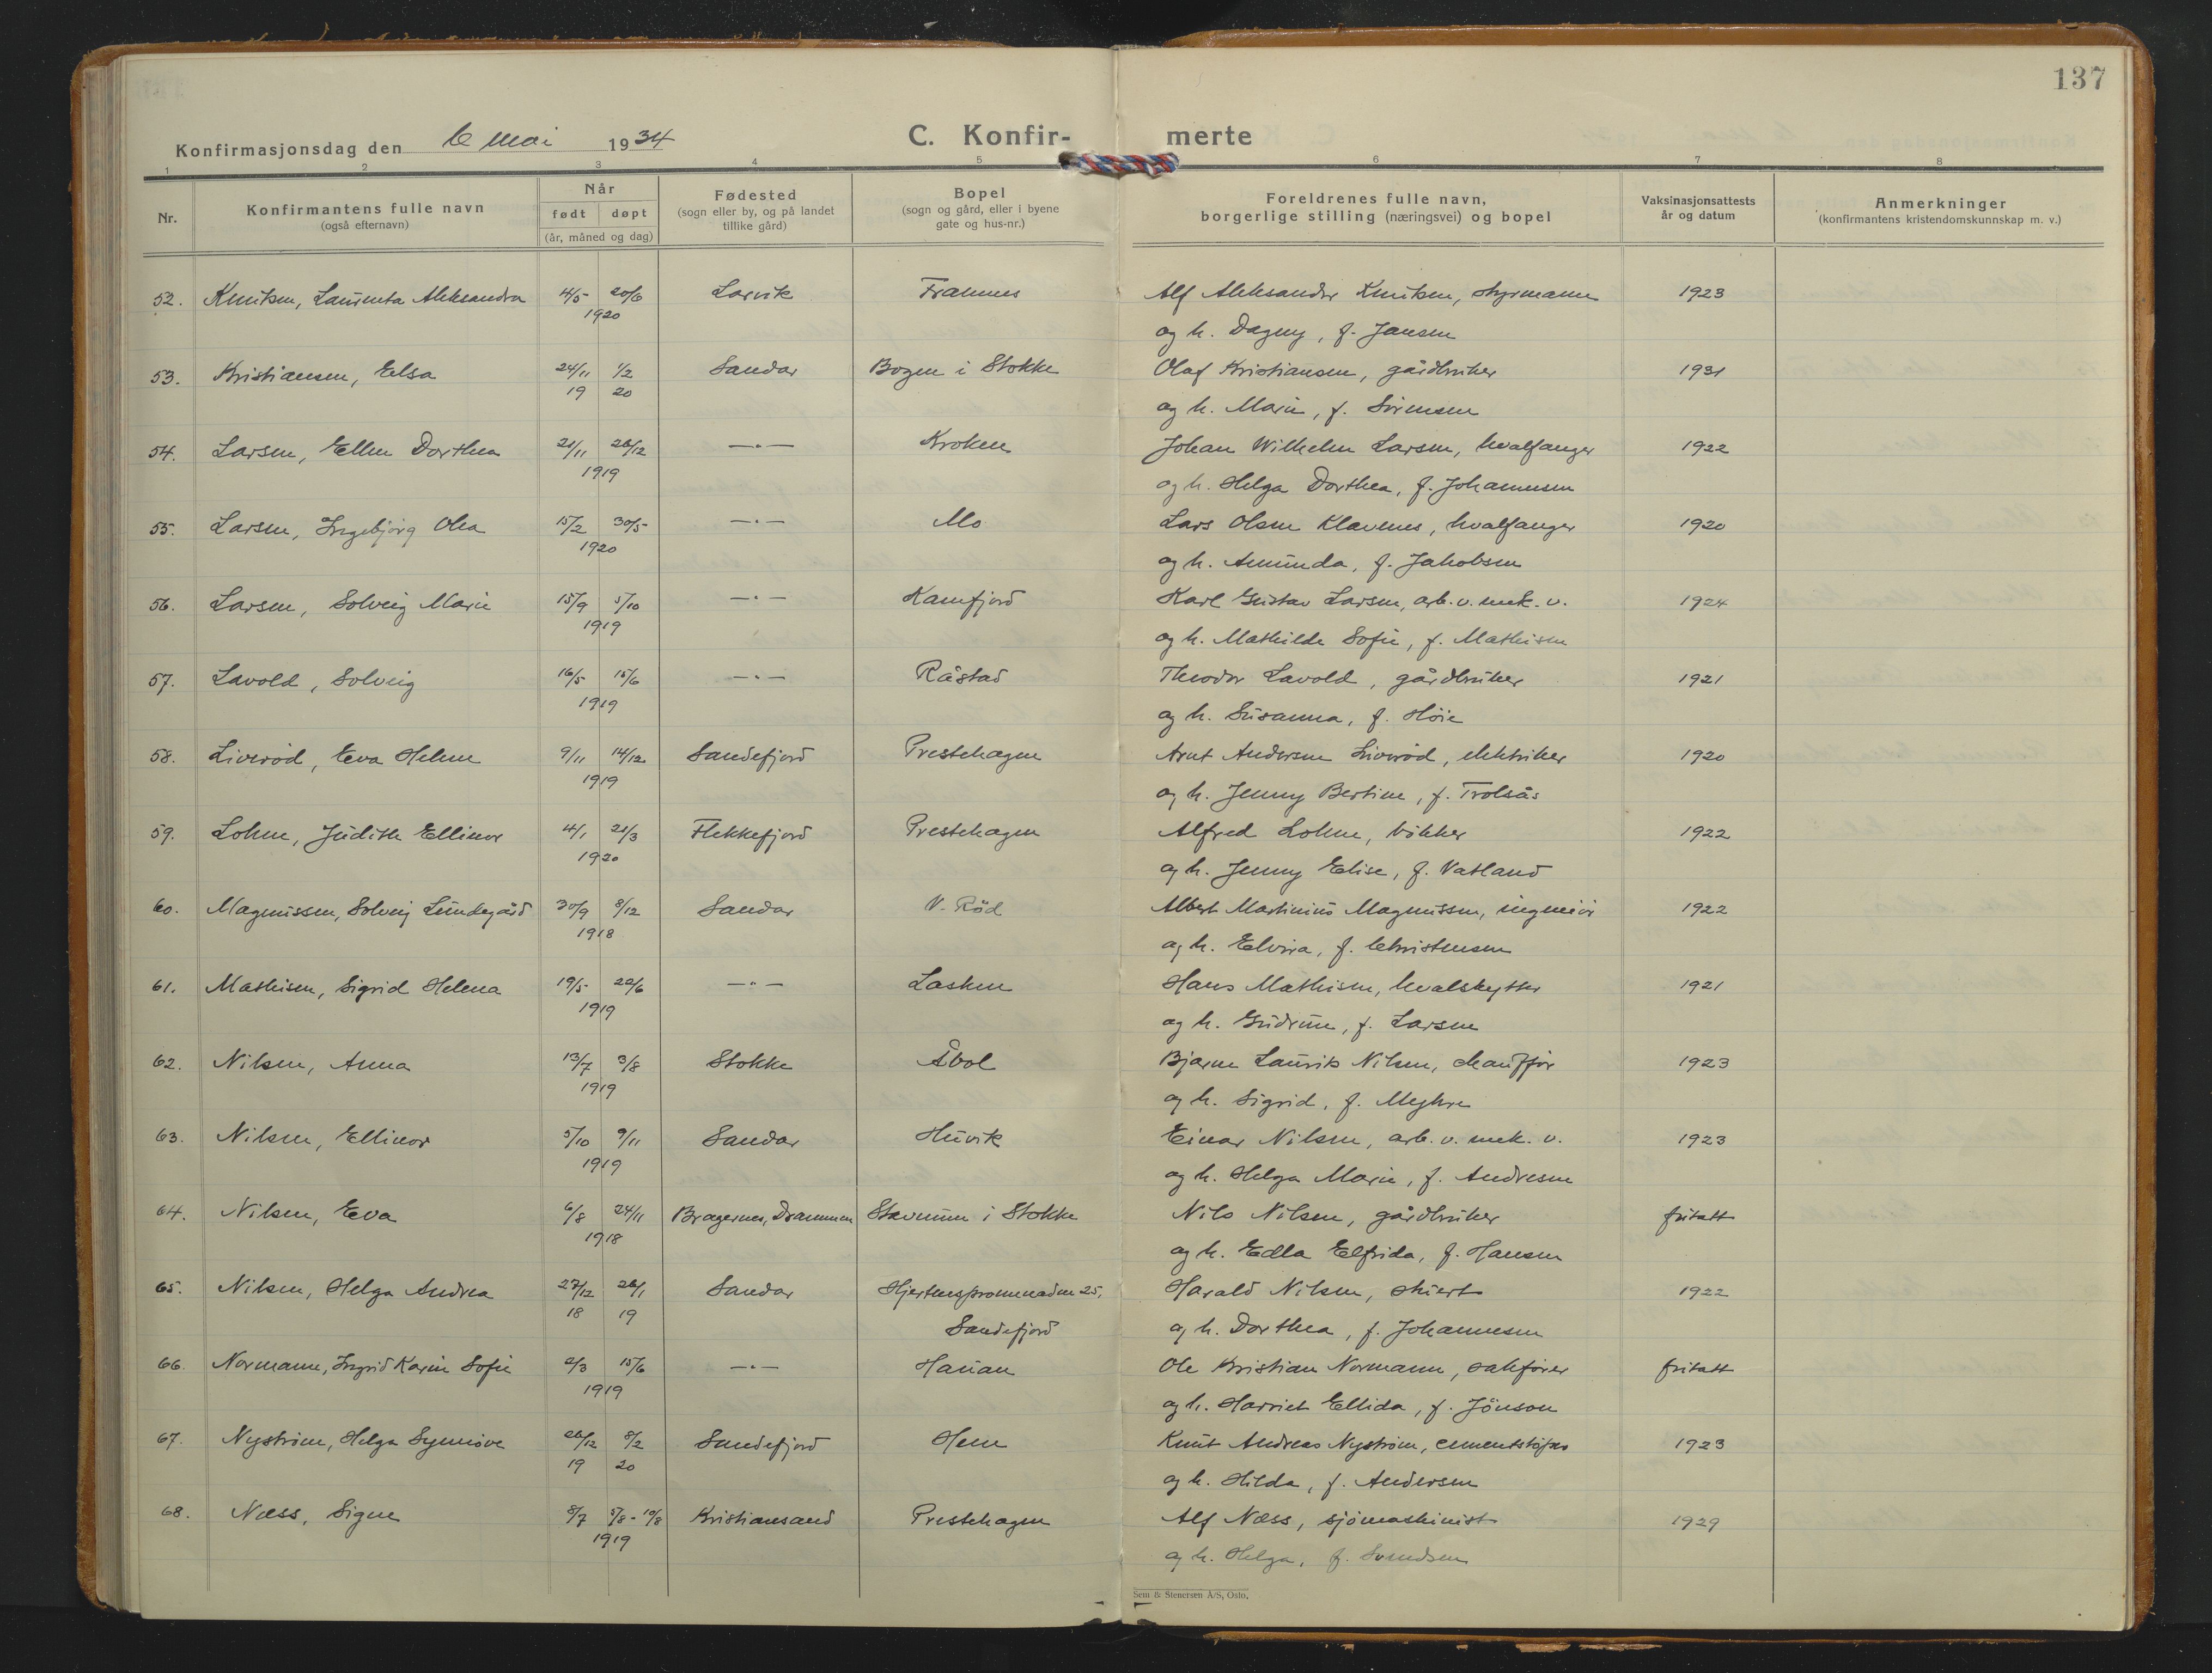 137
Konfirmasjonsdag den 6 mai 1934
C. Konfir- merte
1 2 3 4 5 6 7 8
Nr. Konfirmantens fulle navn (også efternavn) Når født døpt (år, måned og dag) Fødested (sogn eller by, og på landet tillike gård) Bopel (sogn og gård, eller i byene gate og hus-nr.) Foreldrenes fulle navn, borgerlige stilling (næringsvei) og bopel Vaksinasjonsattests år og datum Anmerkninger (konfirmantens kristendomskunnskap m. v.)
52. Knutsen, Aleksandra 4/5 20/6 Larvik Framnes Alf Aleksander Knutsen, styrmann 1923
1920 og h. Dagny, f. Jansen
53. Kristiansen, Elsa 24/11 1/2 Sandar Bogen i Stokke Olaf Kristiansen, gårdbruker 1931
19 20 og h. Marie, f. Sörensen
54. Larsen, Ellen Dorthea 21/11 26/12 —·— Kroken Johan Wilhelm Larsen, hvalfanger 1922
1919 og h. Helga Dorthea, f. Johannesen
55. Larsen, Ingebjörg Olea 15/2 30/5 —·— Mo Lars Olsen Klavenes, hvalfanger 1920
1920 og h. Amunda, f. Jakobsen
56. Larsen, Solveig Marie 15/9 5/10 —·— Kamfjord Karl Gustav Larsen, arb. v. mek. v. 1924
1919 og h. Mathilde Sofie, f. Mathisen
57. Lavold, Solveig 16/5 15/6 —·— Råstad Theodor Lavold, gårdbruker 1921
1919 og h. Susanna, f. Höie
58. Liveröd, Eva Helene 9/11 14/12 Sandefjord Prestehagen Arnt Andersen Liveröd, elektriker 1920
1919 og h. Jenny Bertine, f. Trolsås
59. Lohne, Judith Ellinor 4/1 21/3 Flekkefjord Prestehagen Alfred Lohne, bökker 1922
1920 og h. Jenny Elise, f. Vatland
60. Magnussen, Solveig Lundegård 30/9 8/12 Sandar V. Röd Albert Martinius Magnussen, ingeniör 1922
1918 og h. Elvira, f. Christensen
61. Mathisen, Sigrid Helena 19/5 22/6 —·— Lasken Hans Mathisen, hvalskytter 1921
1919 og h. Gudrun, f. Larsen
62. Nilsen, Anna 13/7 3/8 Stokke Åbol Bjarne Laurits Nilsen, chaufför 1923
1919 og h. Sigrid, f.
63. Nilsen, Ellinor 5/10 9/11 Sandar Huvik Einar Nilsen, arb. v. mek. v. 1923
1919 og h. Helga Marie, f. Andresen
64. Nilsen, Eva 6/8 24/11 Bragernes, Drammen Stavnum i Stokke Nils Nilsen, gårdbruker fritatt
1918 og h. Edla Elfrida, f. Hansen
65. Nilsen, Helga Andrea 27/12 26/1 Sandar Hjertnespromenaden 25, Harald Nilsen, stuert 1922
18 19 Sandefjord og h. Dorthea, f. Johannesen
66. Normann, Ingrid Karin Sofie 2/3 15/6 —·— Hauan Ole Kristian Normann, sakförer fritatt
1919 og h. Harriet Ellida, f. Jönson
67. Nyström, Helga Synnöve 26/12 8/2 Sandefjord Hem Knut Andreas Nyström, cementstöper 1923
19 20 og h. Hilda, f. Andersen
68. Næss, Signe 8/7 5/8 - 10/8 Kristiansand Prestehagen Alf Næss, sjömaskinist 1929
1919 og h. Helga, f. Svendsen
Sem & Stenersen A/S, Oslo.